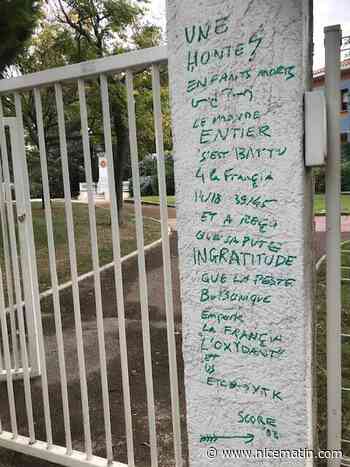 UNE
HONTES
ENFANTS MORTS
LE MONDE
ENTIER
S'EST BATTU
4 la França
14/18 39/45
ET A REÇU
QUE SA PUTE
INGRATITUDE
QUE LA PESTE
BuBonique
Emporte
LA FRANÇIA
L'OXYDANT
ET
US
SCORE
© www.nicematin.com